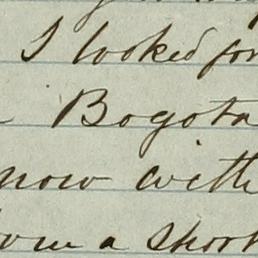 I looked for
Bogota
now with
a short